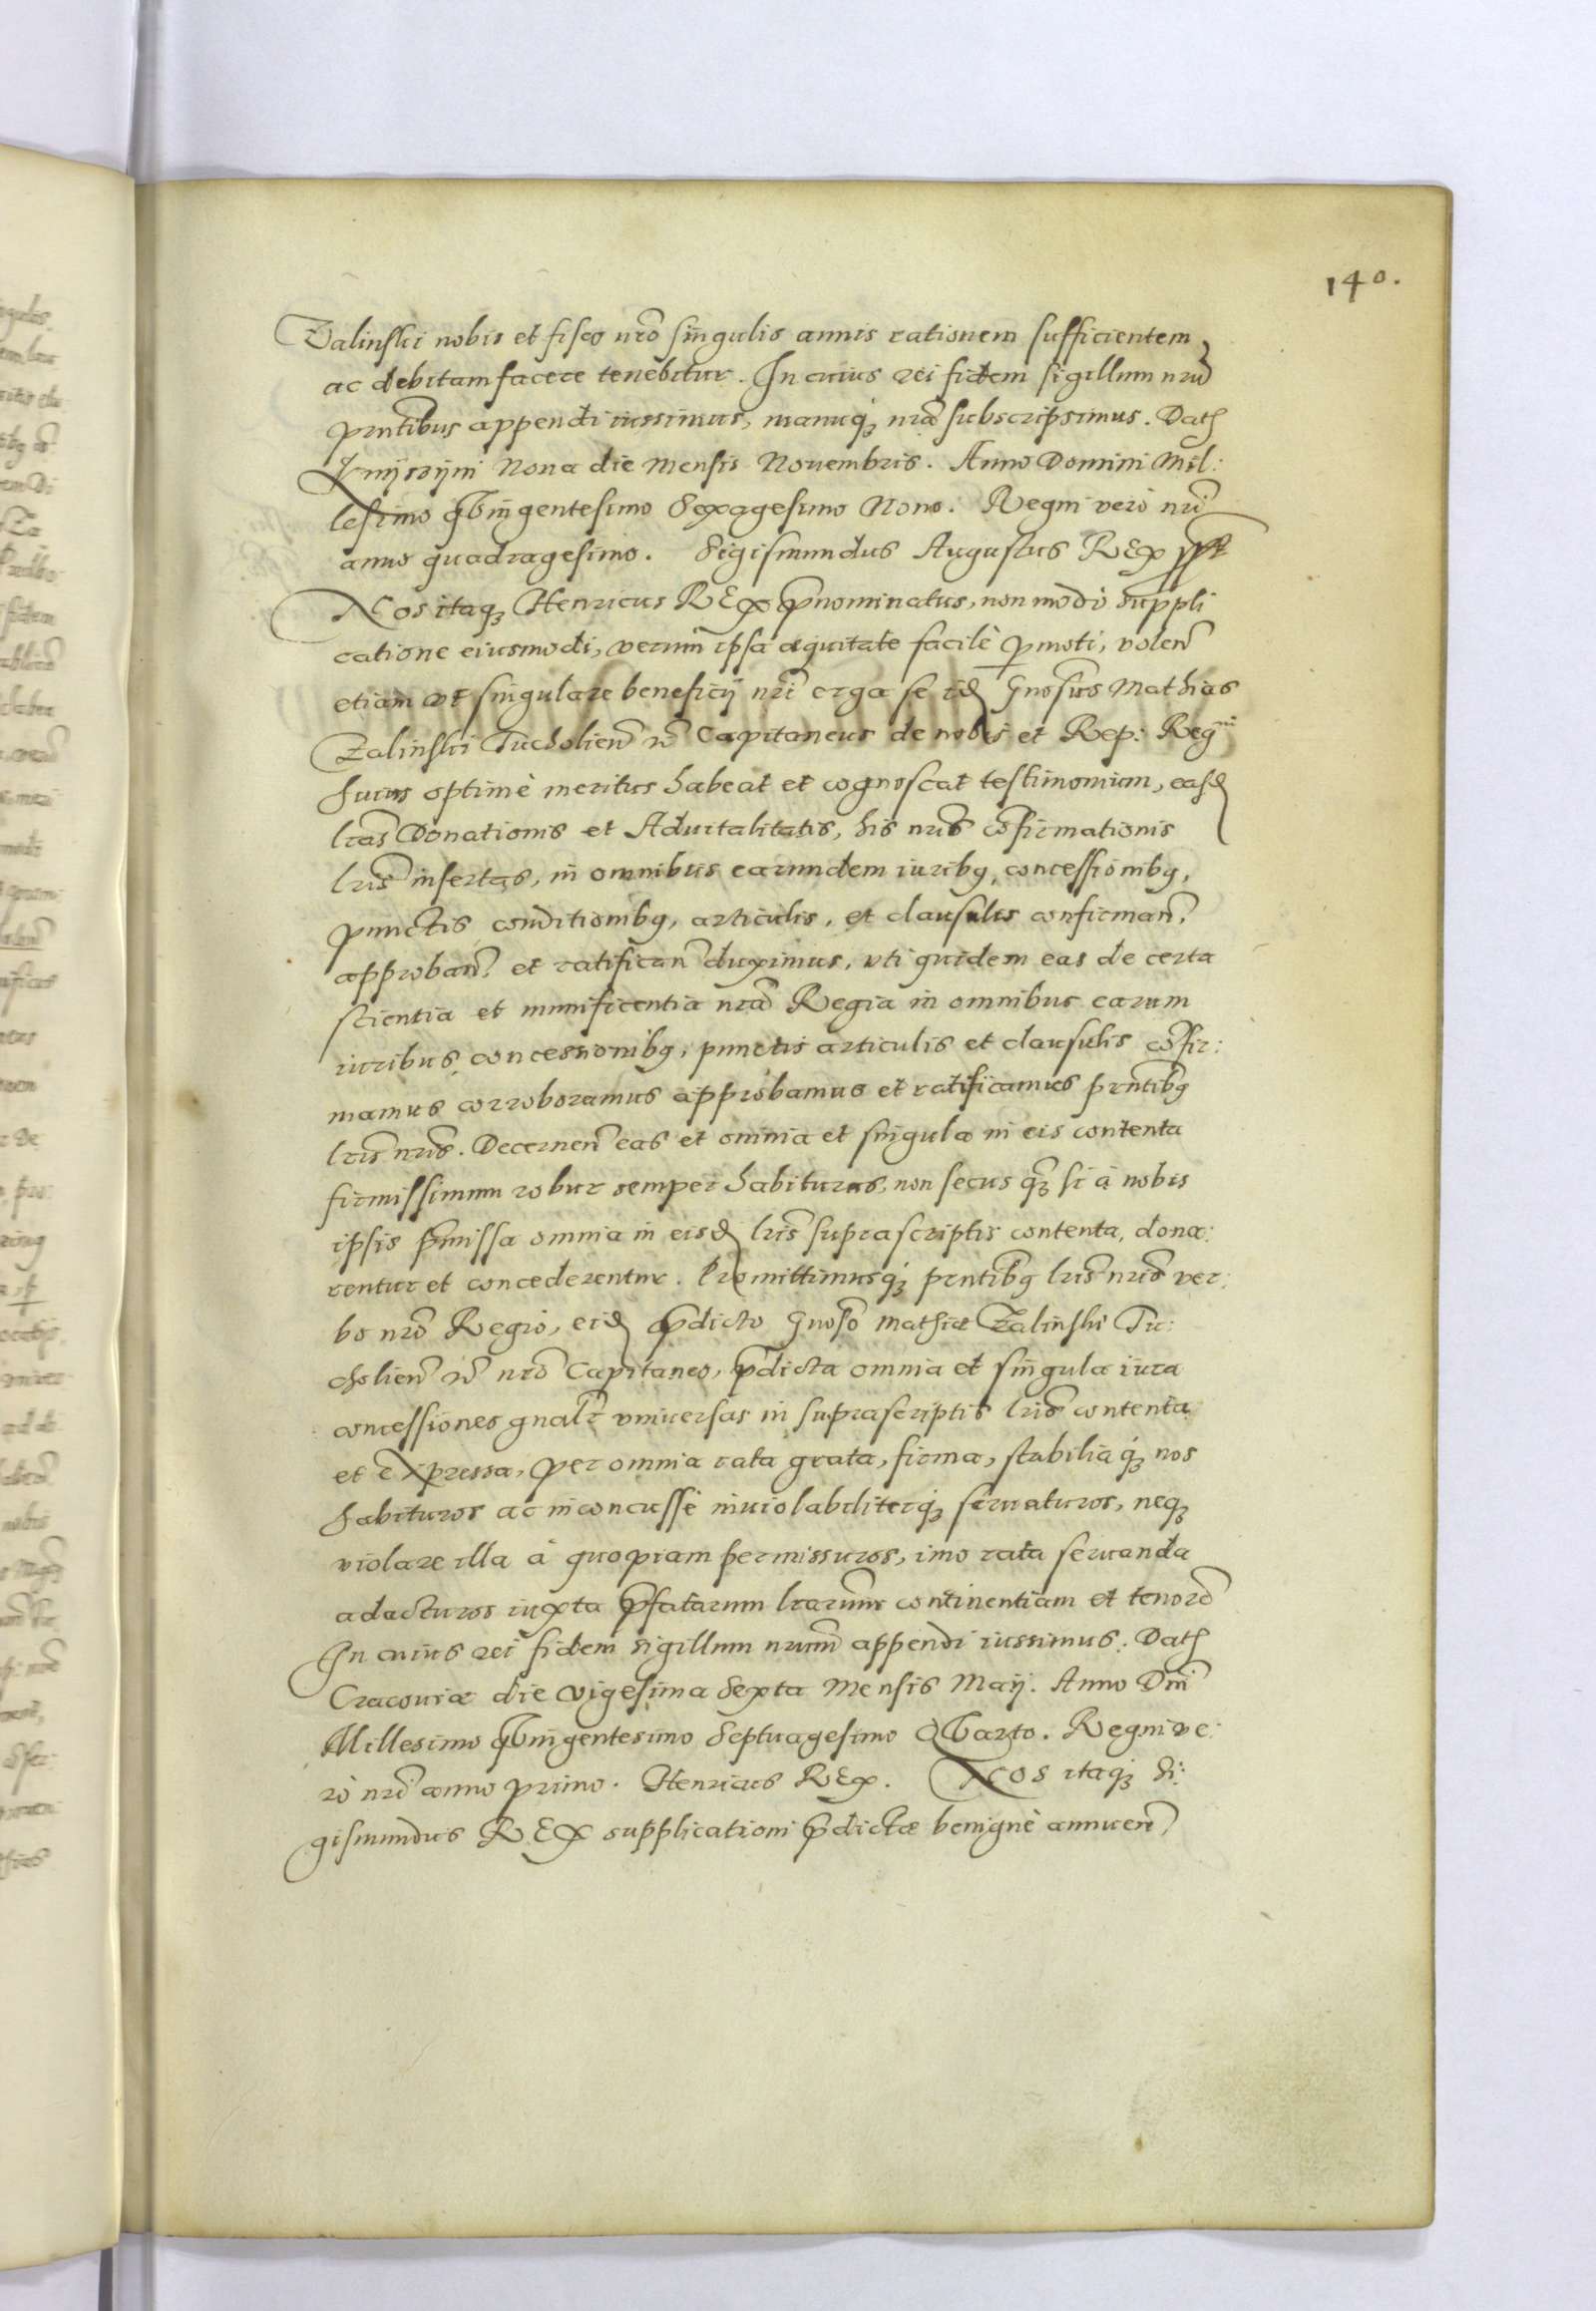 140.
Zalinski nobis et fisco nrõ singulis annis rationem sufficientem
ac debitam facere tenebitur. In cuius rei fidem sigillum nrũ
prñtibus appendi iussimus, manuq́ꝫ nrã subscripsimus. Dat
Knÿszÿni Nona die Mensis Nouembris. Anno Domini Mil:
lesimo qVingentesimo Sexagesimo Nono. Regni verò nrĩ
anno quadragesimo. Sigismundus Augustus REx
Nos itaqꝫ Henricus REx p̃nominatus, non modò suppli
catione eiusmodi, verùm ipsa æquitate facilè ꝑmoti, volen̄
etiam vt singulare beneficÿ nrĩ erga se id Gnosus Mathias
Zalinski Tucholien̄ Capitaneus de nobis et Rep: Regni
huius optimè meritus habeat et cognoscat testimonium, easd
lrãs Donationis et Aduitalitatis, his nrĩs cõfirmationis
lrĩs insertas, in omnibus earundem iuribꝰ, concessionibꝰ,
punctis conditionibꝰ, articulis, et clausulis confirman̄,
approban̄, et ratifican̄ duximus, vti quidem eas de certa
scientia et munificentia nrã Regia in omnibus earum
iuribus, concessionibꝰ, punctis articulis et clausulis cõfir:
mamus corroboramus approbamus et ratificamus prñtibꝰ
lrĩs nrĩs. Decernen̄ eas et omnia et singula in eis contenta
firmissimum robur semper habituras, non secus qꝫ si à nobis
ipsis p̃missa omnia in eisd lrĩs suprascriptis contenta, dona:
rentur et concederentur. Promittimusq́ꝫ prñtibꝰ lrĩs nrĩs ver:
bo nrõ Regio, eid p̃dicto Gnoso Mathiæ Zalinski Tu:
cholien̄ nrõ Capitaneo, p̃dicta omnia et singula iura
concessiones gnalr̃ vniuersas in suprascriptis lrĩs contenta
et Expressa, per omnia rata grata, firma, stabiliaq́ꝫ nos
habituros ac inconcussè inuiolabiliterq́ꝫ seruaturos, neqꝫ
violare illa à quopiam permissuros, imo rata seruanda
adacturos iuxta p̃fatarum lrarum continentiam et tenorẽ
In cuius rei fidem sigillum nrum appendi iussimus. Dat
Cracouiæ die vigesima Sexta Mensis Maÿ. Anno Dnĩ
Millesimo qVingentesimo Septuagesimo QVarto. Regni ve:
rò nrĩ anno primo. Henricus REx. Nos itaqꝫ Si:
gismundus REx supplicationi p̃dictæ benignè annuen̄